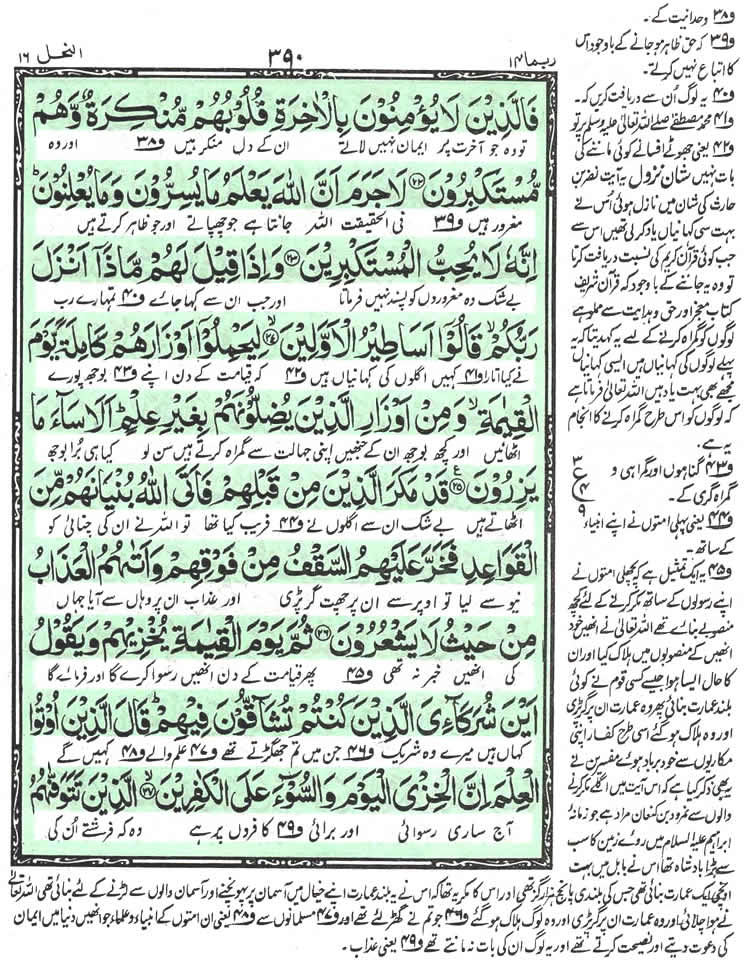 ربما ۱۴
۳۹۰
النحل ۱۶
فَالَّذِيْنَ لَا يُؤْمِنُوْنَ بِالْاٰخِرَةِ قُلُوْبُهُمْ مُّنْكِرَةٌ وَّهُمْ
تو وہ جو آخرت پر ایمان نہیں لاتے ان کے دل منکر ہیں ف۳۸ اور وہ
مُّسْتَكْبِرُوْنَ ﴿۲۲﴾ لَا جَرَمَ اَنَّ اللّٰهَ يَعْلَمُ مَا يُسِرُّوْنَ وَمَا يُعْلِنُوْنَ ؕ
مغرور ہیں ف۳۹ فی الحقیقت اللہ جانتا ہے جو چھپاتے اور جو ظاہر کرتے ہیں
اِنَّهٗ لَا يُحِبُّ الْمُسْتَكْبِرِيْنَ ﴿۲۳﴾ وَاِذَا قِيْلَ لَهُمْ مَّاذَاۤ اَنْزَلَ
بے شک وہ مغروروں کو پسند نہیں فرماتا اور جب ان سے کہا جائے ف۴۰ تمہارے رب
رَبُّكُمْ ۙ قَالُوْۤا اَسَاطِيْرُ الْاَوَّلِيْنَ ﴿۲۴﴾ۙ لِيَحْمِلُوْۤا اَوْزَارَهُمْ كَامِلَةً يَّوْمَ
نے کیا اتارا ف۴۱ کہیں اگلوں کی کہانیاں ہیں ف۴۲ کہ قیامت کے دن اپنے ف۴۳ بوجھ پورے
الْقِيٰمَةِ ۙ وَمِنْ اَوْزَارِ الَّذِيْنَ يُضِلُّوْنَهُمْ بِغَيْرِ عِلْمٍ ؕ اَلَا سَآءَ مَا
اٹھائیں اور کچھ بوجھ ان کے جنہیں اپنی جہالت سے گمراہ کرتے ہیں سن لو کیا ہی برا بوجھ
يَزِرُوْنَ ﴿۲۵﴾ قَدْ مَكَرَ الَّذِيْنَ مِنْ قَبْلِهِمْ فَاَتَى اللّٰهُ بُنْيَانَهُمْ مِّنَ
اٹھاتے ہیں بے شک ان سے اگلوں نے ف۴۴ فریب کیا تھا تو اللہ نے ان کی چنائی کو
الْقَوَاعِدِ فَخَرَّ عَلَيْهِمُ السَّقْفُ مِنْ فَوْقِهِمْ وَاَتٰىهُمُ الْعَذَابُ
نیو سے لیا تو اوپر سے ان پر چھت گر پڑی اور عذاب ان پر وہاں سے آیا جہاں
مِنْ حَيْثُ لَا يَشْعُرُوْنَ ﴿۲۶﴾ ثُمَّ يَوْمَ الْقِيٰمَةِ يُخْزِيْهِمْ وَيَقُوْلُ
کی انھیں خبر نہ تھی ف۴۵ پھر قیامت کے دن انھیں رسوا کرے گا اور فرمائے گا
اَيْنَ شُرَكَآءِىَ الَّذِيْنَ كُنْتُمْ تُشَآقُّوْنَ فِيْهِمْ ؕ قَالَ الَّذِيْنَ اُوْتُوا
کہاں ہیں میرے وہ شریک ف۴۶ جن میں تم جھگڑتے تھے ف۴۷ علم والے ف۴۸ کہیں گے
الْعِلْمَ اِنَّ الْخِزْىَ الْيَوْمَ وَالسُّوْٓءَ عَلَى الْكٰفِرِيْنَ ﴿۲۷﴾ۙ الَّذِيْنَ تَتَوَفّٰىهُمُ
آج ساری رسوائی اور برائی ف۴۹ کافروں پر ہے وہ کہ فرشتے اُن کی
ف۳۸ وحدانیت کے۔
ف۳۹ کہ حق ظاہر ہو جانے کے باوجود اس
کا اتباع نہیں کرتے۔
ف۴۰ یہ لوگ اُن سے دریافت کریں کہ۔
ف۴۱ محمد مصطفےٰ صلے اللہ تعالیٰ علیہ وسلم پر تو
ف۴۲ یعنی جھوٹے افسانے کوئی ماننے کی
بات نہیں شان نزول یہ آیت نضر بن
حارث کی شان میں نازل ہوئی اُس نے
بہت سی کہانیاں یاد کرلی تھیں اس سے
جب کوئی قرآن کریم کی نسبت دریافت کرتا
تو وہ یہ جاننے کے باوجود کہ قرآن شریف
کتاب معجز اور حق و ہدایت سے مملو ہے
لوگوں کو گمراہ کرنے کے لیے یہ کہدیتا کہ یہ
پہلے لوگوں کی کہانیاں ہیں ایسی کہانیاں
مجھے بھی بہت یاد ہیں اللہ تعالیٰ فرماتا ہے
کہ لوگوں کو اس طرح گمراہ کرنے کا انجام
یہ ہے۔
ف۴۳ گناہوں اور گمراہی و
گمراہ گری کے۔
۳
ع
۴
۹
ف۴۴ یعنی پہلی امتوں نے اپنے انبیاء
کے ساتھ۔
ف۴۵ یہ ایک تمثیل ہے کہ پچھلی امتوں نے
اپنے رسولوں کے ساتھ مکر کرنے کے لئے کچھ
منصوبے بنائے تھے اللہ تعالیٰ نے انھیں خود
انھیں کے منصوبوں میں ہلاک کیا اور ان
کا حال ایسا ہوا جیسے کسی قوم نے کوئی
بلند عمارت بنائی پھر وہ عمارت ان پر گر پڑی
اور وہ ہلاک ہو گئے اسی طرح کفار اپنی
مکاریوں سے خود برباد ہوئے مفسرین نے
یہ بھی ذکر کیا ہے کہ اس آیت میں اگلے مکر کرنے
والوں سے نمرود بن کنعان مراد ہے جو زمانۂ
ابراہیم علیہ السلام میں روئے زمین کا سب
سے بڑا بادشاہ تھا اس نے بابل میں بہت
اونچی ایک عمارت بنائی تھی جس کی بلندی پانچ ہزار گز تھی اور اس کا مکر یہ تھا کہ اس نے یہ بلند عمارت اپنے خیال میں آسمان پر پہونچنے اور آسمان والوں سے لڑنے کے لئے بنائی تھی اللہ تعالیٰ
نے ہوا چلائی اور وہ عمارت ان پر گر پڑی اور وہ لوگ ہلاک ہو گئے ف۴۶ جو تم نے گھڑ لئے تھے اور ف۴۷ مسلمانوں سے ف۴۸ یعنی ان امتوں کے انبیاء و علماء جو انھیں دنیا میں ایمان
کی دعوت دیتے اور نصیحت کرتے تھے اور یہ لوگ ان کی بات نہ مانتے تھے ف۴۹ یعنی عذاب۔